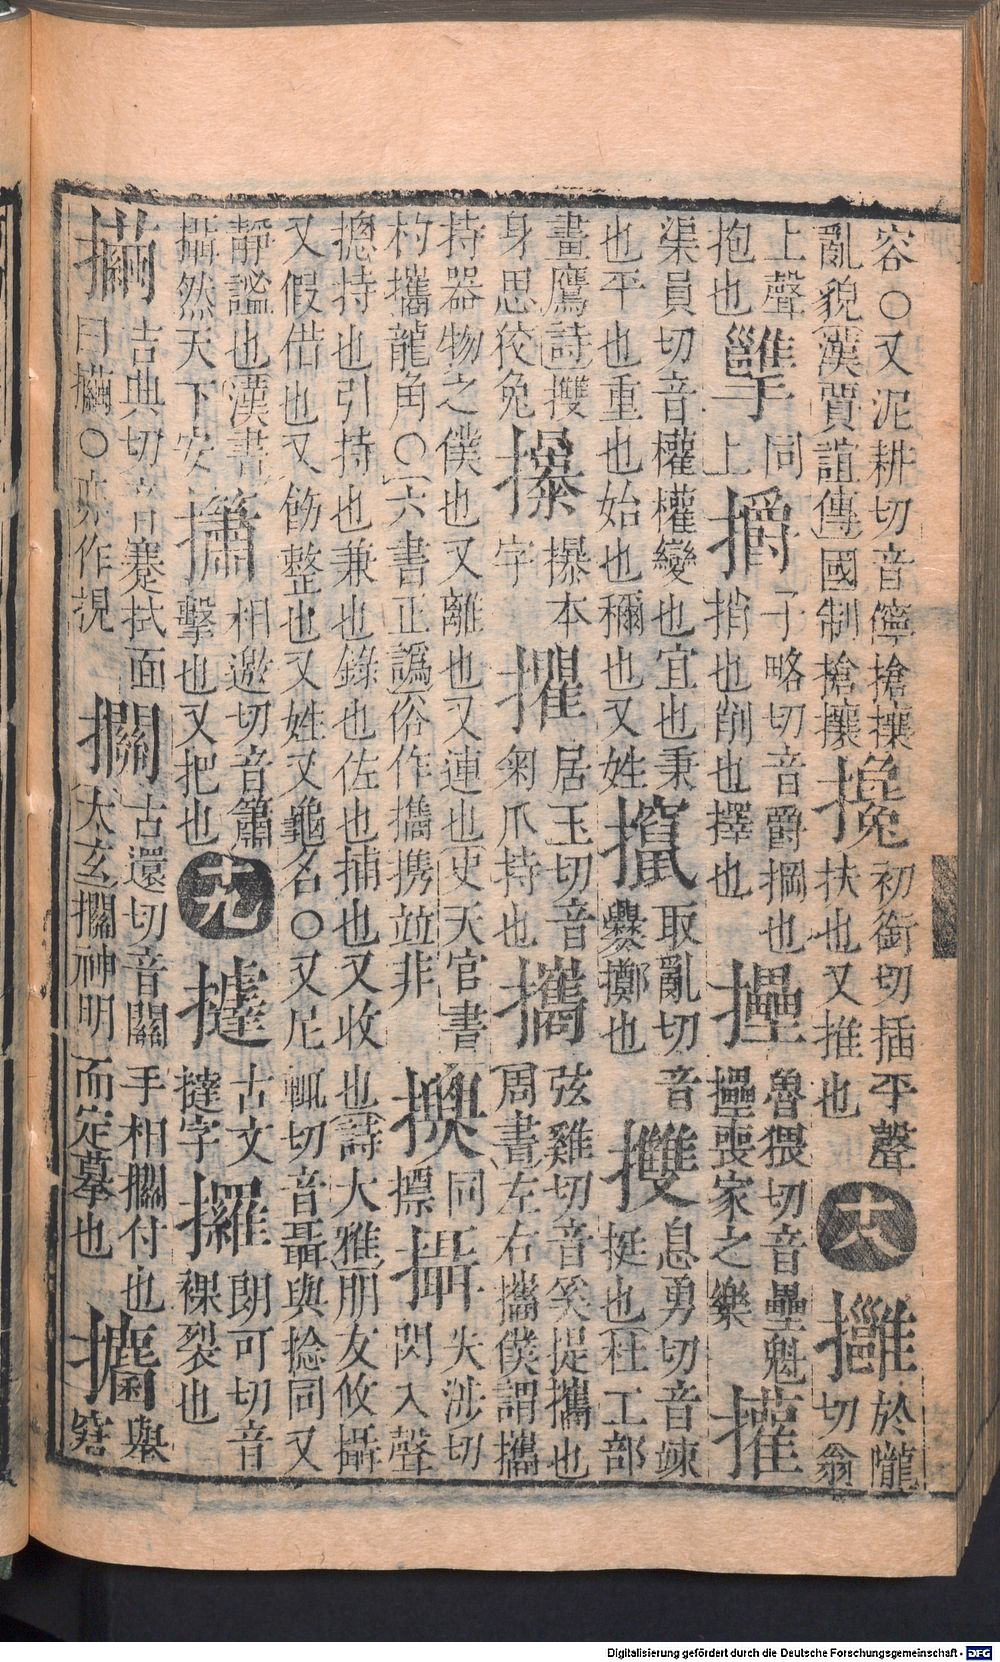 容○又泥耕切音儜搶攘亂貌漢賈誼傳國制搶攘攙初銜切插平聲扶也又推也十八於隴切翁
上聲抱也同上子略切音爵也捎也削也擇也魯猥切音壘魁喪家之樂㩲
渠員切音權權變也宜也秉也平也重也始也稱也又姓攛取亂切音爨擲也㩳息勇切音竦挺也杜工部
畫鷹詩㩳身思狡兔本字居玉切音匊爪持也攜弦雞切音奚提攜也周書左右攜僕謂攜
持器物之僕也又離也又連也史天官書杓攜龍角○六書正譌俗作㩗携竝非同摽攝失涉切閃入聲
摠持也引持也兼也錄也佐也捕也又收也詩大雅朋友攸攝又假借也又飭整也又姓又龜名○又尼輒切音聶與捻同又
靜謐也漢書攝然天下安㩋相邀切音簫擊也又把也十九古文撻字攞朗可切音裸裂也
吉典切音蹇拭面曰○亦作古還切音關手相付也太玄神明而定摹也舉窘
Digitalisierung gefördert durch die Deutsche Forschungsgemeinschaft - DFG